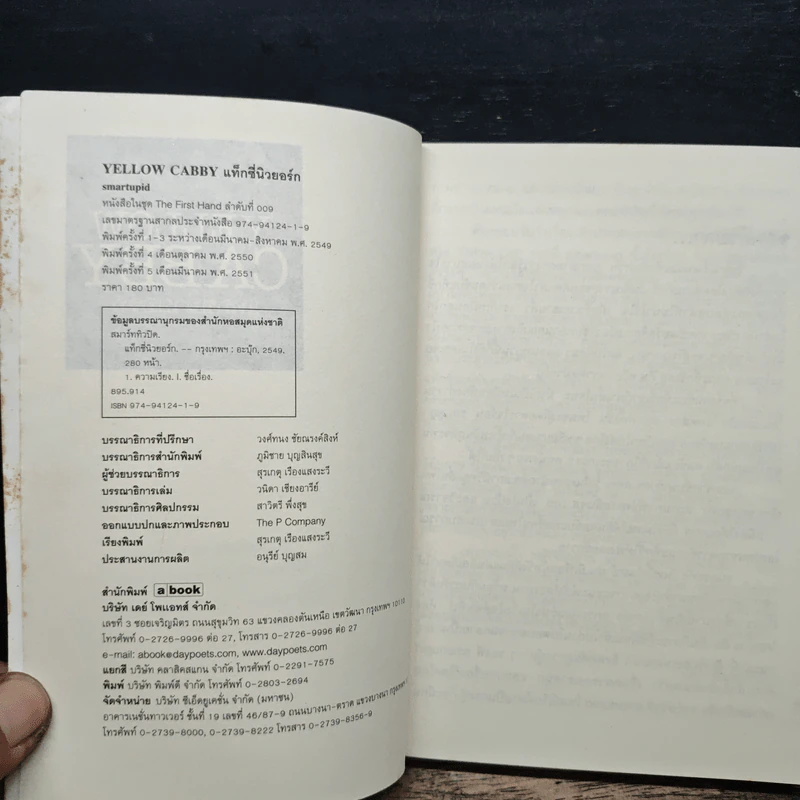 YELLOW CABBY แท็กซี่นิวยอร์ก
smartupid
หนังสือในชุด The First Hand ลำดับที่ 009
เลขมาตรฐานสากลประจำหนังสือ 974-94124-1-9
พิมพ์ครั้งที่ 1-3 ระหว่างเดือนมีนาคม-สิงหาคม พ.ศ. 2549
พิมพ์ครั้งที่ 4 เดือนตุลาคม พ.ศ. 2550
พิมพ์ครั้งที่ 5 เดือนมีนาคม พ.ศ. 2551
ราคา 180 บาท
ข้อมูลบรรณานุกรมของสำนักหอสมุดแห่งชาติ
สมาร์ททิวปิด.
แท็กซี่นิวยอร์ก. -- กรุงเทพฯ : อะบุ๊ก, 2549.
280 หน้า.
1. ความเรียง. I. ชื่อเรื่อง.
895.914
ISBN 974-94124-1-9
บรรณาธิการที่ปรึกษา วงศ์ทนง ชัยณรงค์สิงห์
บรรณาธิการสำนักพิมพ์ ภูมิชาย บุญสินสุข
ผู้ช่วยบรรณาธิการ สุรเกตุ เรืองแสงระวี
บรรณาธิการเล่ม วนิดา เชียงอารีย์
บรรณาธิการศิลปกรรม สาวิตรี พึ่งสุข
ออกแบบปกและภาพประกอบ The P Company
เรียงพิมพ์ สุรเกตุ เรืองแสงระวี
ประสานงานการผลิต อนุรีย์ บุญสม
สำนักพิมพ์ a book
บริษัท เดย์ โพเอทส์ จำกัด
เลขที่ 3 ซอยเจริญมิตร ถนนสุขุมวิท 63 แขวงคลองตันเหนือ เขตวัฒนา กรุงเทพฯ 10110
โทรศัพท์ 0-2726-9996 ต่อ 27, โทรสาร 0-2726-9996 ต่อ 27
e-mail: abook@daypoets.com, www.daypoets.com
แยกสี บริษัท คลาสิคสแกน จำกัด โทรศัพท์ 0-2291-7575
พิมพ์ บริษัท พิมพ์ดี จำกัด โทรศัพท์ 0-2803-2694
จัดจำหน่าย บริษัท ซีเอ็ดยูเคชั่น จำกัด (มหาชน)
อาคารเนชั่นทาวเวอร์ ชั้นที่ 19 เลขที่ 46/87-9 ถนนบางนา-ตราด แขวงบางนา กรุงเทพฯ
โทรศัพท์ 0-2739-8000, 0-2739-8222 โทรสาร 0-2739-8356-9